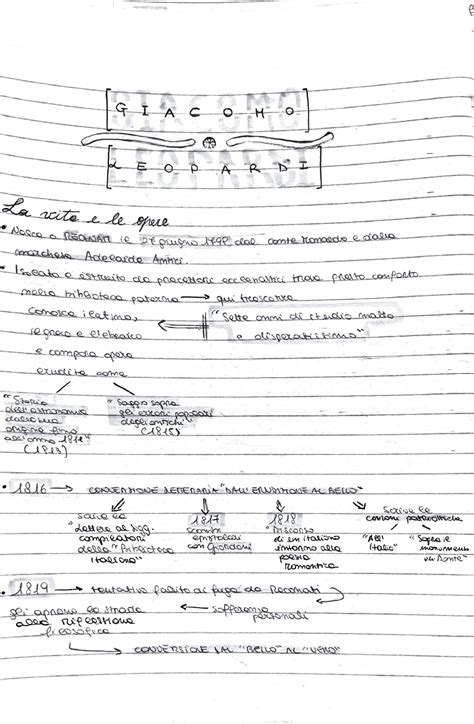 GIACOMO
LEOPARDI
La vita e le opere
• Nasce a RECANATI il 27 giugno 1798 dal conte Monaldo e dalla
marchesa Adelaide Antici.
• Isolato e istruito da precettori ecclesiastici trova presto conforto
nella biblioteca paterna → qui trascorre
conosce il latino,
"Sette anni di studio matto
il greco e l'ebraico
e disperatissimo"
e compone opere
erudite come
"Storia
dell'astronomia
dalla sua
origine fino
all'anno 1811"
(1813)
"Saggio sopra
gli errori popolari
degli antichi"
(1815)
• 1816 → CONVERSIONE LETTERARIA "DALL'ERUDIZIONE AL BELLO"
scrive le
"Lettere ai Sigg.
compilatori
della "Biblioteca
italiana"
1817
scambi
epistolari
con Giordani
1818
"Discorso
di un italiano
intorno alla
poesia
romantica
Scrive le
canzoni patriottiche
"All'
Italia"
"Sopra il
monumento
di Dante"
• 1819 → tentativo fallito di fuga da Recanati
gli aprono la strada ← sofferenze
alla riflessione
personali
filosofica
→ CONVERSIONE DAL "BELLO" AL "VERO"